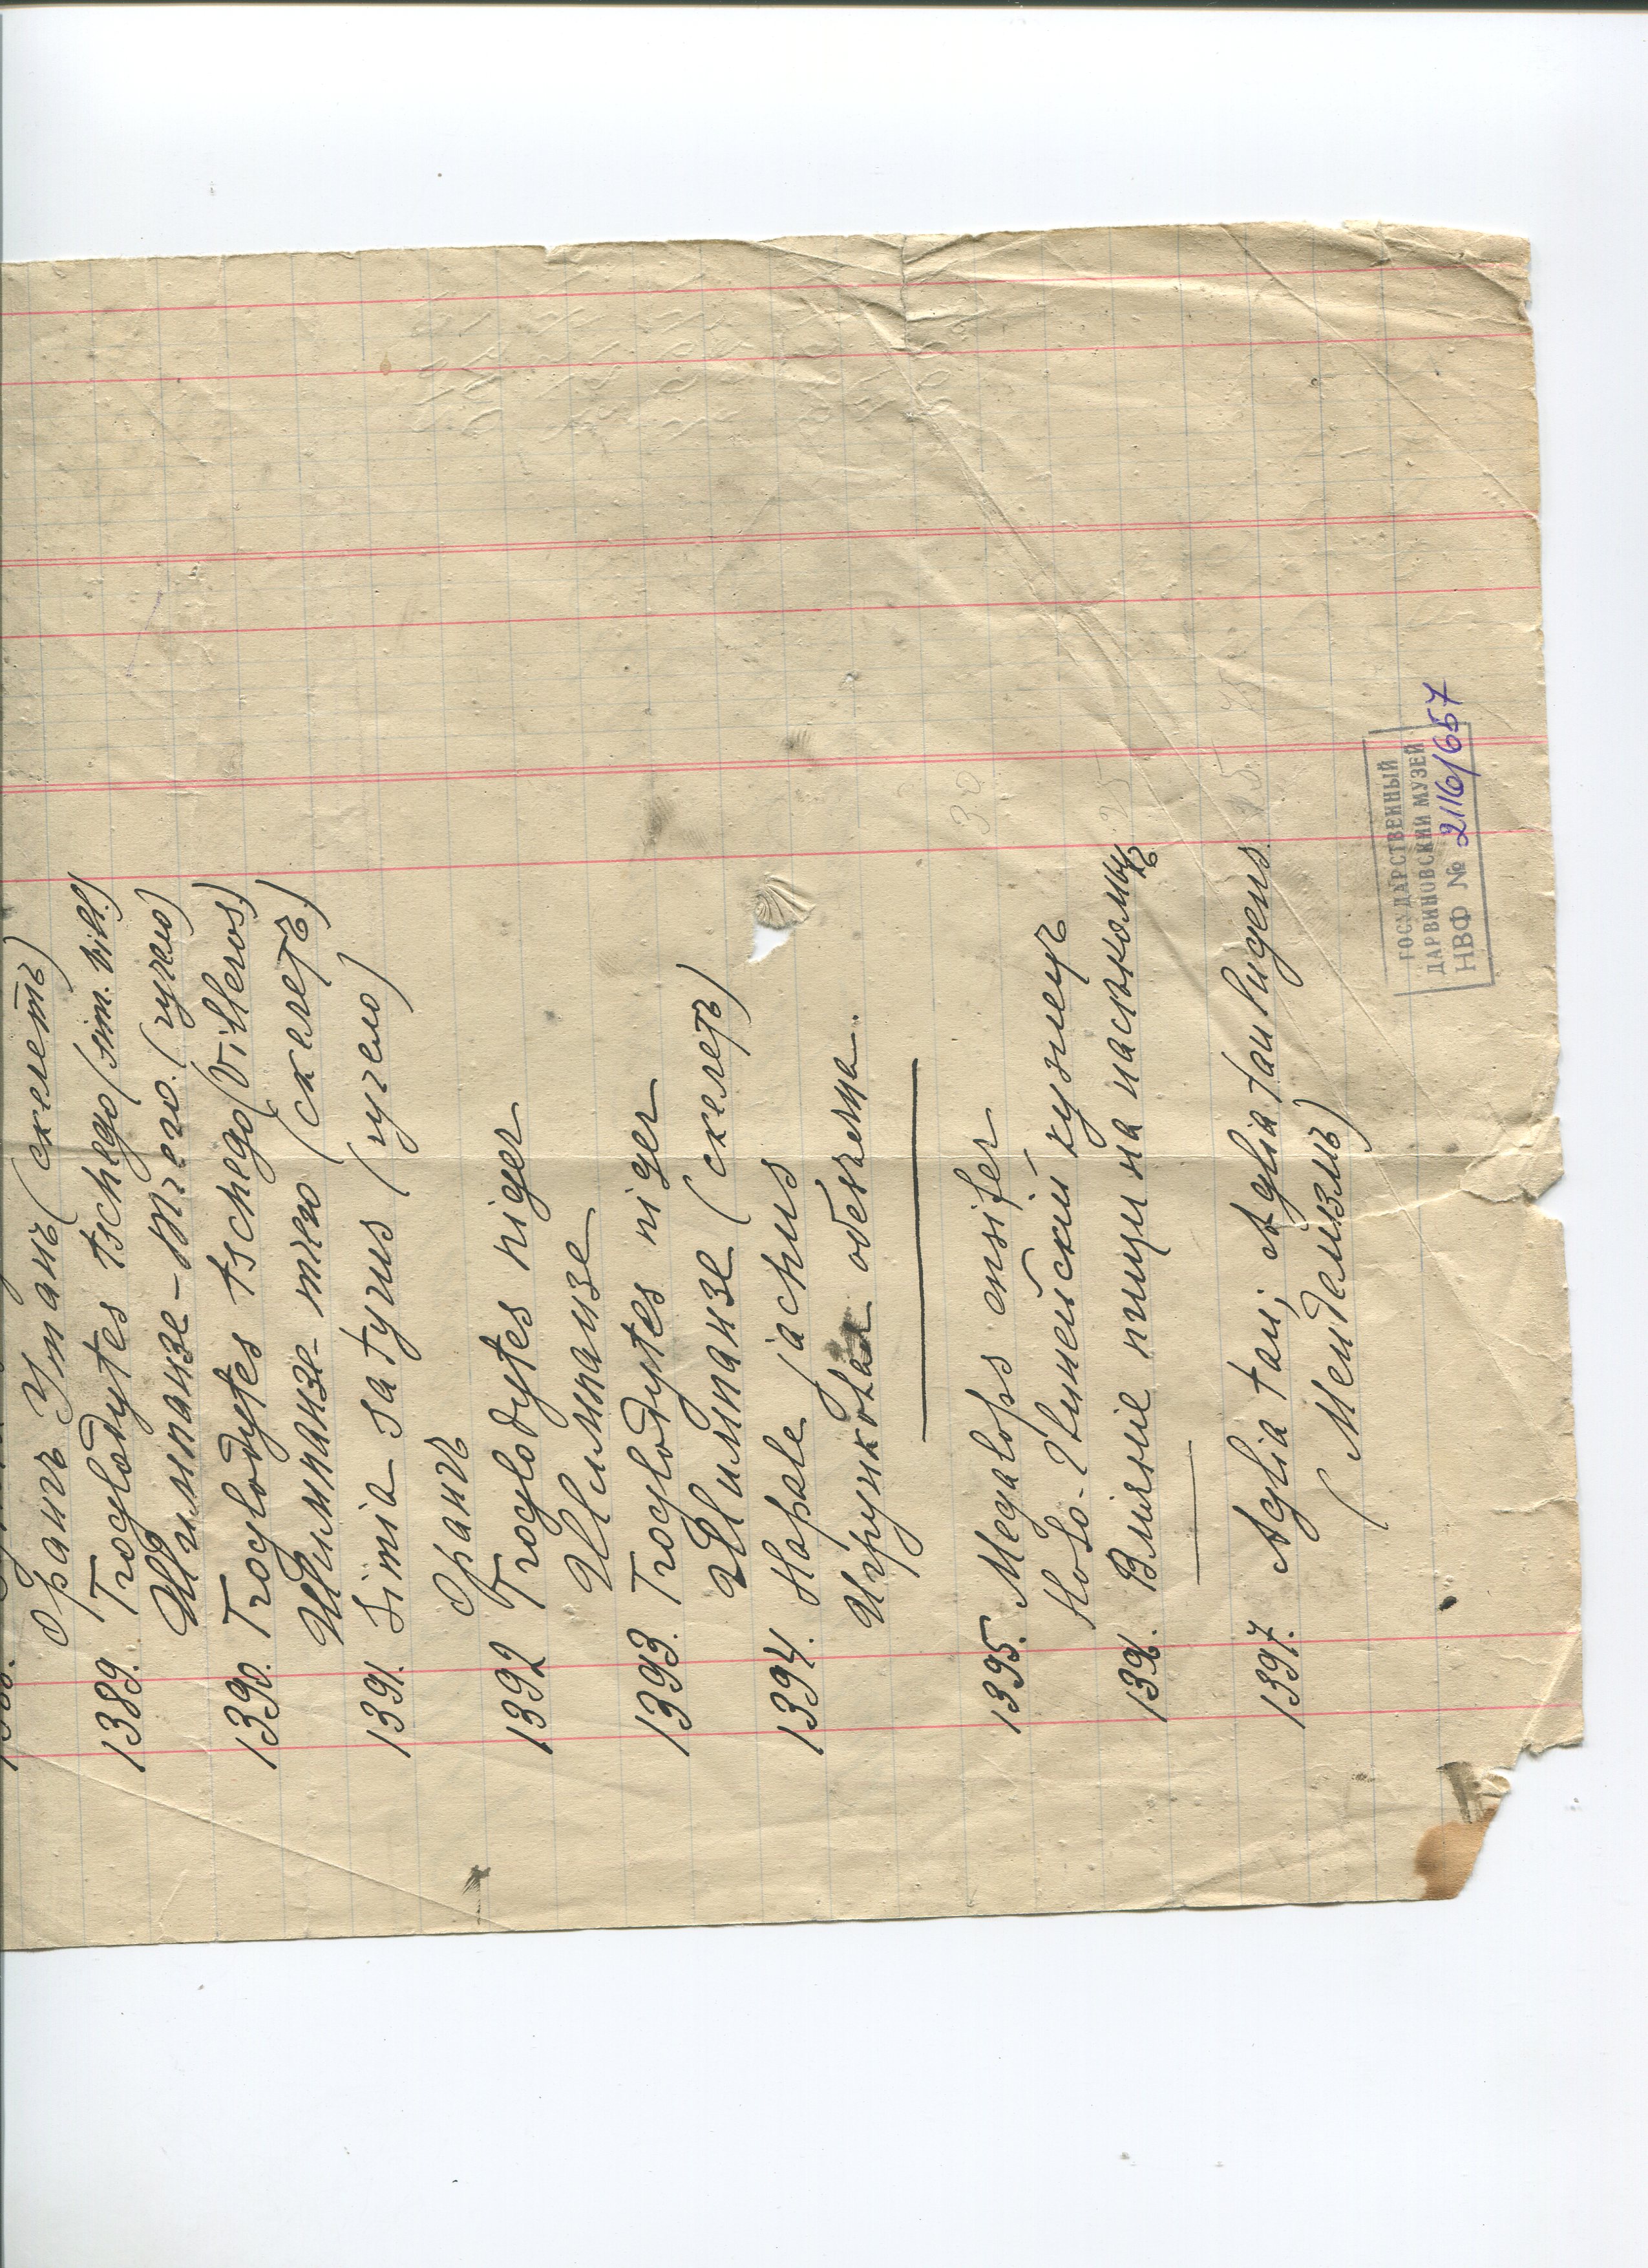 Орангъ Утангъ (скелетъ)
1389. Troglodytes tschego (sim. vill.)
Шимпанзе-тчего. (чучело)
1390. Troglodytes tschego (villeros.)
Шимпанзе-тчего (скелетъ)
1391. Simia satyrus (чучело)
Орангъ
1392 Troglodytes niger
Шимпанзе
1393. Troglodytes niger
Шимпанзе (скелетъ)
1394. Hapale jachus
Игрунковая обезьяна.
30
1395. Megalops ensifer
Ново-Гвинейский кузнецъ
1396. Вліяніе пищи на насѣкомыхъ 25
1397. Aglia tau; Aglia tau lugens 15
(Менделизмъ)
ГОСУДАРСТВЕННЫЙ
ДАРВИНОВСКИЙ МУЗЕЙ
НВФ № 2116/657